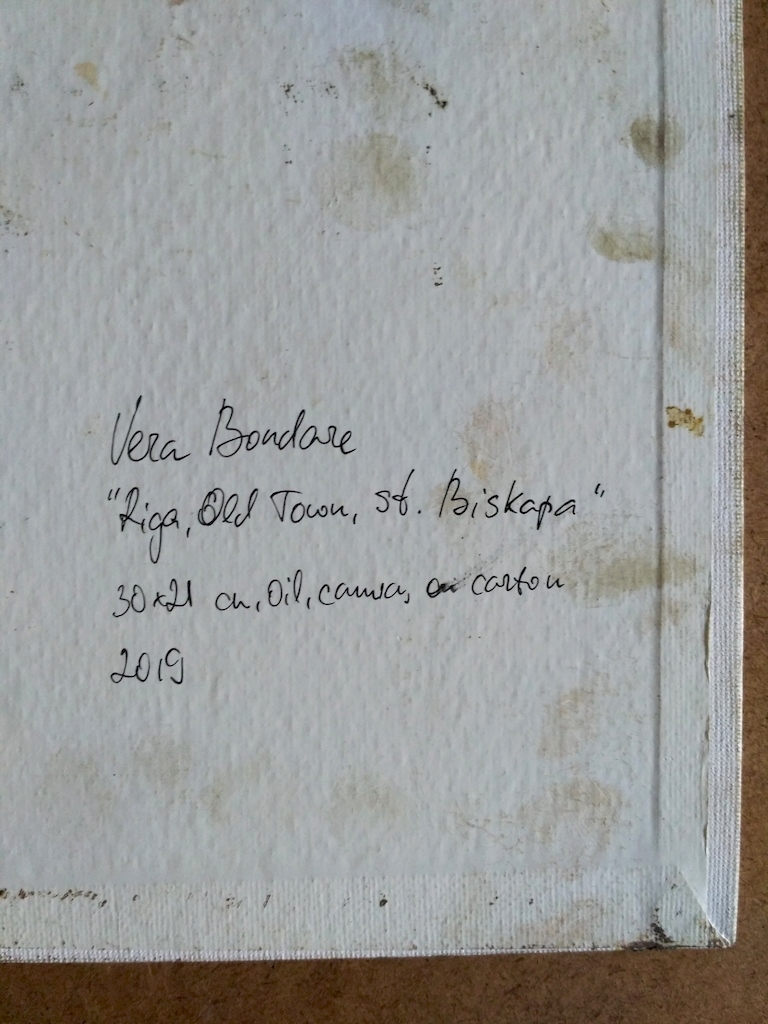 Vera Bondare
"Riga, Old Town, st. Biskapa"
30x21 cm, Oil, canvas, on carton
2019